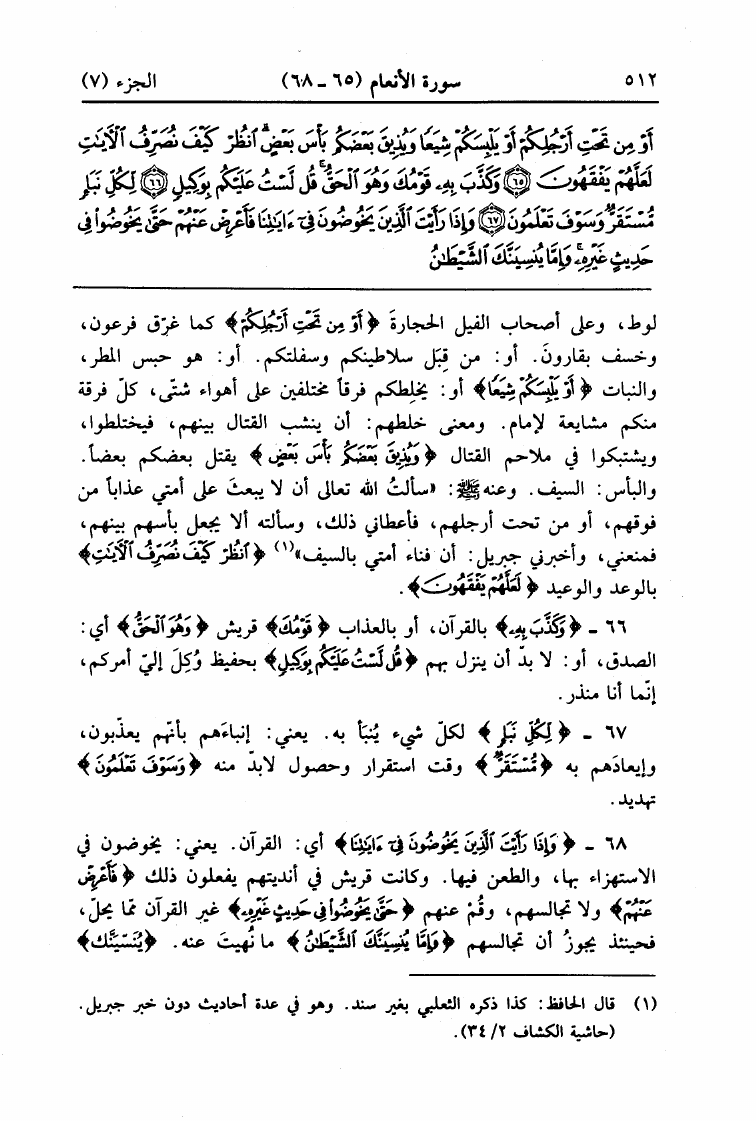 ٥١٢ سورة الأنعام (٦٥ - ٦٨) الجزء (٧)
أَوْ مِن تَحْتِ أَرْجُلِكُمْ أَوْ يَلْبِسَكُمْ شِيَعًا وَيُذِيقَ بَعْضَكُم بَأْسَ بَعْضٍ ۗ ٱنظُرْ كَيْفَ نُصَرِّفُ ٱلْءَايَٰتِ
لَعَلَّهُمْ يَفْقَهُونَ ﴿٦٥﴾ وَكَذَّبَ بِهِۦ قَوْمُكَ وَهُوَ ٱلْحَقُّ ۚ قُل لَّسْتُ عَلَيْكُم بِوَكِيلٍ ﴿٦٦﴾ لِّكُلِّ نَبَإٍ
مُّسْتَقَرٌّ ۚ وَسَوْفَ تَعْلَمُونَ ﴿٦٧﴾ وَإِذَا رَأَيْتَ ٱلَّذِينَ يَخُوضُونَ فِىٓ ءَايَٰتِنَا فَأَعْرِضْ عَنْهُمْ حَتَّىٰ يَخُوضُوا۟ فِى
حَدِيثٍ غَيْرِهِۦ ۚ وَإِمَّا يُنسِيَنَّكَ ٱلشَّيْطَٰنُ
لوط، وعلى أصحاب الفيل الحجارةَ ﴿أَوْ مِن تَحْتِ أَرْجُلِكُمْ﴾ كما غرّق فرعون،
وخسف بقارونَ. أو: من قِبَل سلاطينكم وسفلتكم. أو: هو حبس المطر،
والنبات ﴿أَوْ يَلْبِسَكُمْ شِيَعًا﴾ أو: يخلِطكم فرقاً مختلفين على أهواء شتّى، كلّ فرقة
منكم مشايعة لإمام. ومعنى خلطهم: أن ينشب القتال بينهم، فيختلطوا،
ويشتبكوا في ملاحم القتال ﴿وَيُذِيقَ بَعْضَكُم بَأْسَ بَعْضٍ﴾ يقتل بعضكم بعضاً.
والبأس: السيف. وعنه ﷺ: «سألتُ الله تعالى أن لا يبعثَ على أمتي عذاباً من
فوقهم، أو من تحت أرجلهم، فأعطاني ذلك، وسألته ألا يجعل بأسهم بينهم،
فمنعني، وأخبرني جبريل: أن فناء أمتي بالسيف»(١) ﴿ٱنظُرْ كَيْفَ نُصَرِّفُ ٱلْءَايَٰتِ﴾
بالوعد والوعيد ﴿لَعَلَّهُمْ يَفْقَهُونَ﴾.
٦٦ - ﴿وَكَذَّبَ بِهِۦ﴾ بالقرآن، أو بالعذاب ﴿قَوْمُكَ﴾ قريش ﴿وَهُوَ ٱلْحَقُّ﴾ أي:
الصدق، أو: لا بدّ أن ينزل بهم ﴿قُل لَّسْتُ عَلَيْكُم بِوَكِيلٍ﴾ بحفيظ وُكِلَ إليّ أمركم،
إنّما أنا منذر.
٦٧ - ﴿لِّكُلِّ نَبَإٍ﴾ لكلّ شيء يُنبَأ به. يعني: إنباءَهم بأنّهم يعذّبون،
وإيعادَهم به ﴿مُّسْتَقَرٌّ﴾ وقت استقرار وحصول لابدّ منه ﴿وَسَوْفَ تَعْلَمُونَ﴾
تهديد.
٦٨ - ﴿وَإِذَا رَأَيْتَ ٱلَّذِينَ يَخُوضُونَ فِىٓ ءَايَٰتِنَا﴾ أي: القرآن. يعني: يخوضون في
الاستهزاء بها، والطعن فيها. وكانت قريش في أنديتهم يفعلون ذلك ﴿فَأَعْرِضْ
عَنْهُمْ﴾ ولا تجالسهم، وقُمْ عنهم ﴿حَتَّىٰ يَخُوضُوا۟ فِى حَدِيثٍ غَيْرِهِۦ﴾ غير القرآن ممّا يحلّ،
فحينئذ يجوزُ أن تجالسهم ﴿وَإِمَّا يُنسِيَنَّكَ ٱلشَّيْطَٰنُ﴾ ما نُهيتَ عنه. ﴿يُنَسّيَنَّك﴾
(١) قال الحافظ: كذا ذكره الثعلبي بغير سند. وهو في عدة أحاديث دون خبر جبريل.
(حاشية الكشاف ٢/ ٣٤).